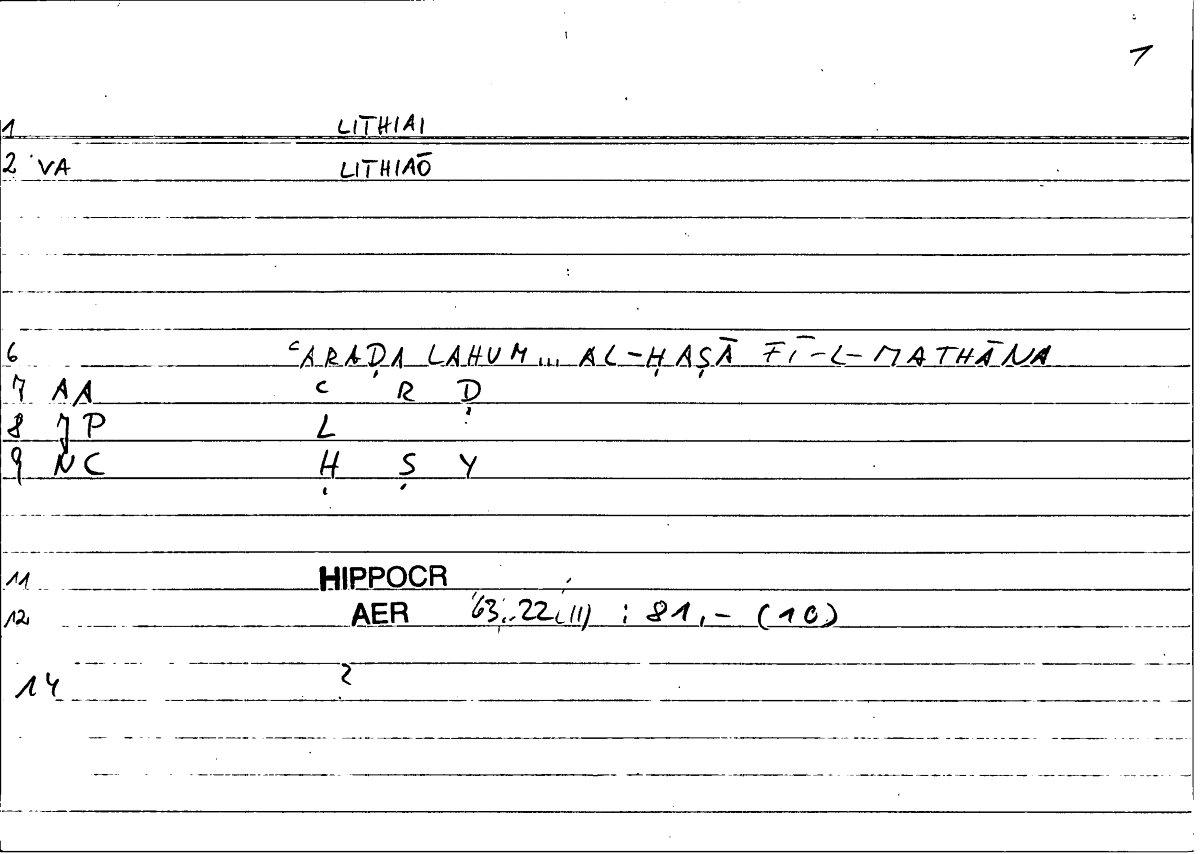 1
1 LITHIAI
2 VA LITHIAŌ
6 ʿARAḌA LAHUM... AL-ḤAṢĀ FĪ-L-MATHĀNA
7 AA ʿ R Ḍ
8 JP L
9 NC Ḥ Ṣ Y
11 HIPPOCR
12 AER 63,22(11) : 81,- (10)
14 2